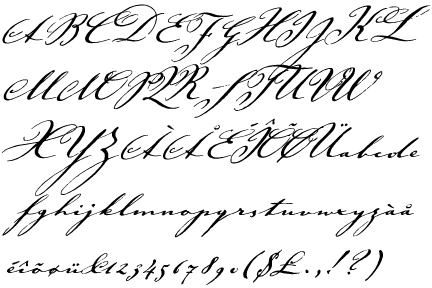 ABCDEFGHIJKL
MNOPQRSTUVW
XYZÀÅÉÎÕØÜabcde
fghijklmnopqrstuvwxyzàå
éîõøü&1234567890($£.,!?)